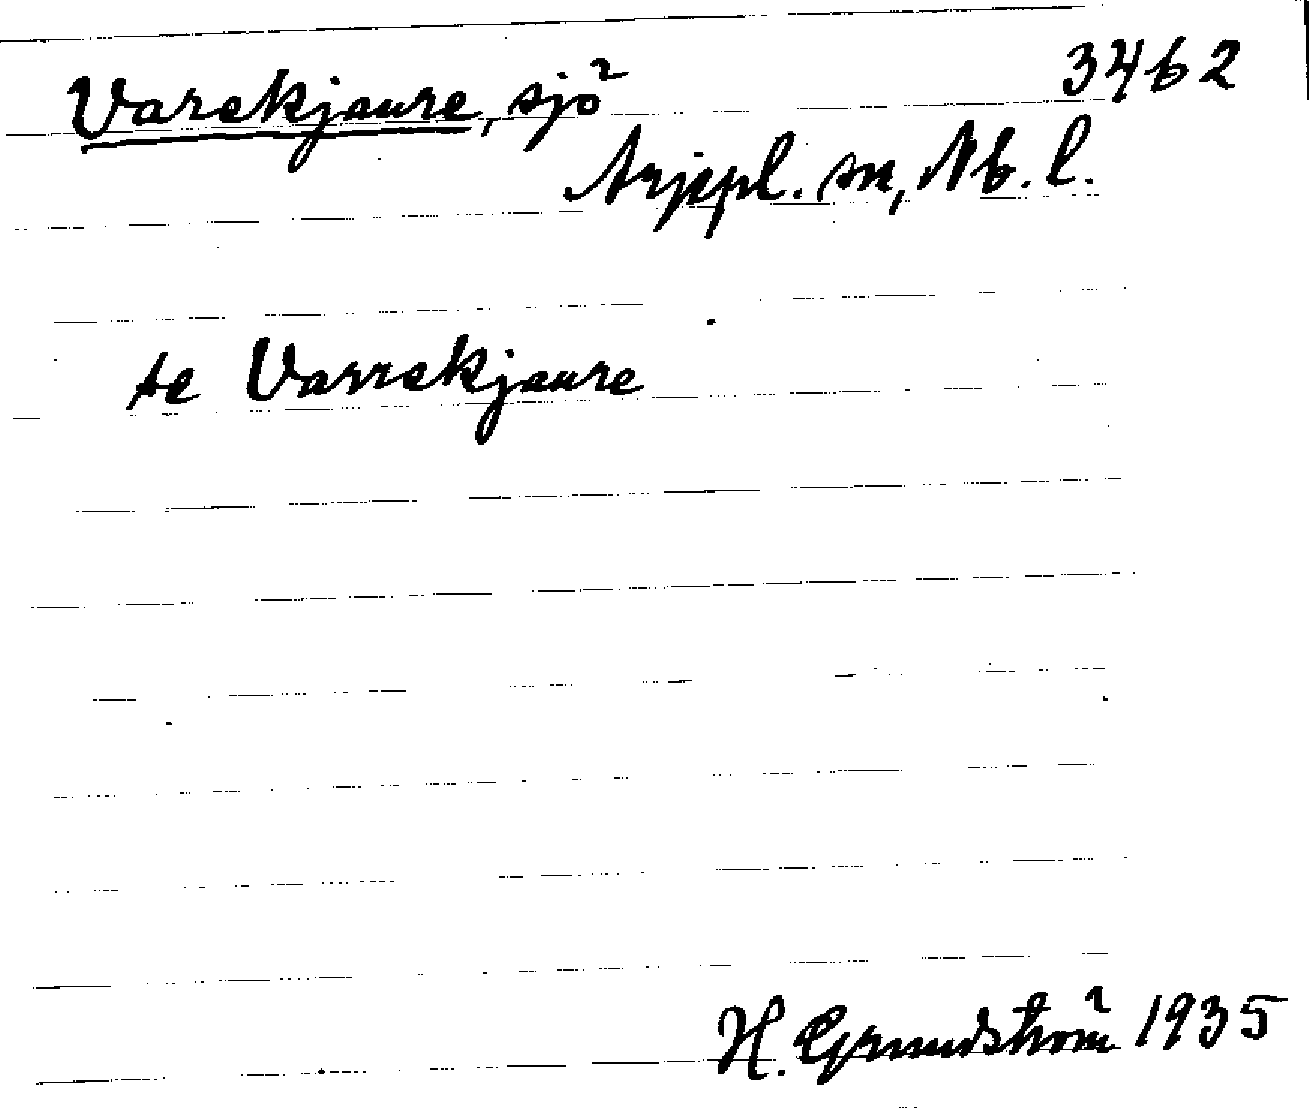 Varekjaure, sjö 3462
Arjeppl. sn, Nb. l.
se Varrekjaure
H. Grundström 1935